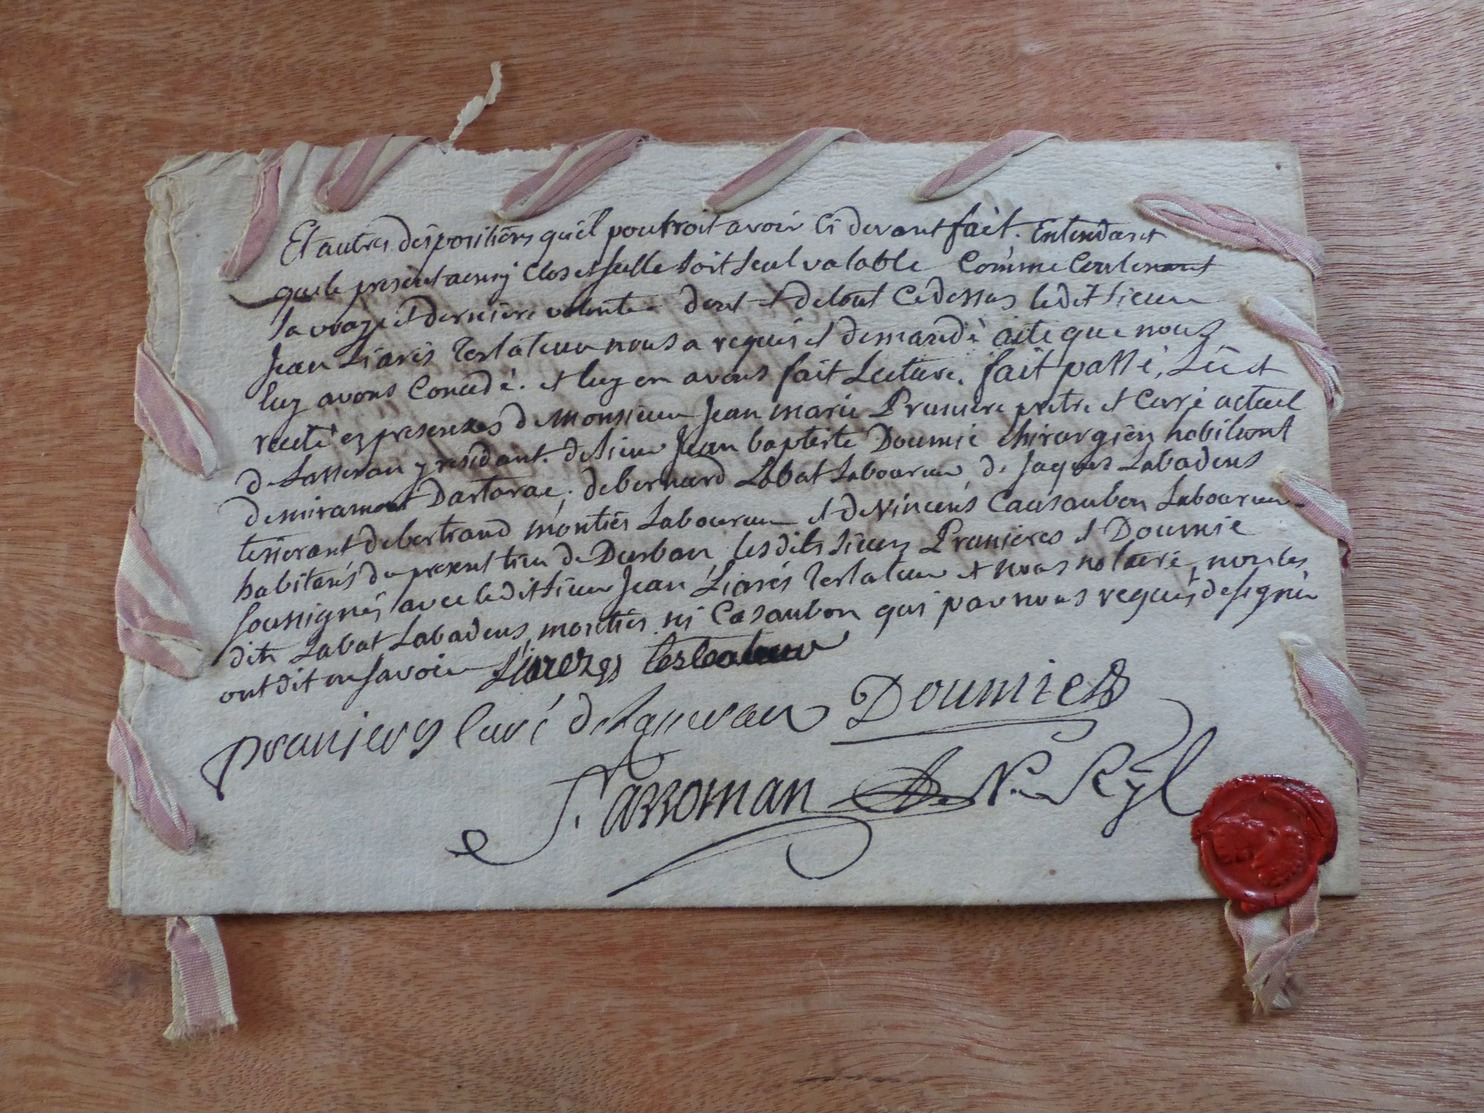 Et autres dispositions qu'il pourroit avoir ci devant fait. Entendant
que le present ainsy clos et sellé soit seul valable comme contenant
sa vraye et derniere volonte dont et de tout ce dessus ledit sieur
Jean Liarés testateur nous a requis et demandé acte que nous
luy avons concedé. et luy en avons fait lecture. fait passé, Lû et
recité ez presences de Monsieur Jean marie Praniere pretre et Curé actuel
de Lasseran y residant. de sieur Jean baptiste Doumie chirurgien habitant
de miramont Dastarac; de bernard Labat Laboureur de Jaques Labadens
tisserant de bertrand montiés Laboureur et de Vincens Causaubon Laboureur
habitans du present lieu de Durban les dits sieurs Pranieres et Doumie
soussignés avec ledit sieur Jean Liarés Testateur et nous notaire, non les
dits Labat Labadens montiés ni Casaubon qui par nous requis de signer
ont dit ne savoir Liarezés testateur
pranieres curé de Lasseran Doumie
S. arroman Nre Royl